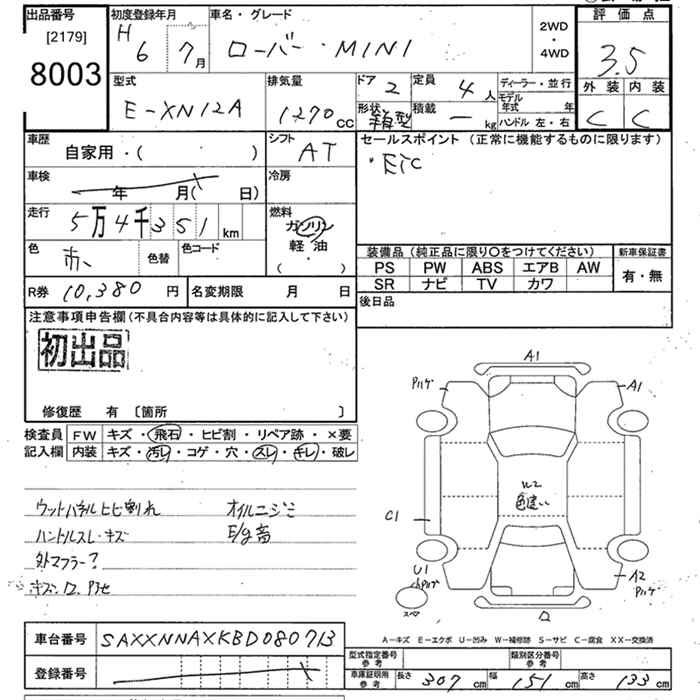 出品番号
[2179]
8003
初度登録年月
H 6 7月
車名・グレード
ローバー・MINI
2WD
・
4WD
評価点
3.5
外装 内装
C C
型式
E-XN12A
排気量
1270 cc
ドア 2
形状 箱型
定員 4 人
積載 ー kg
ディーラー・並行
モデル年式 年
ハンドル 左・右
車歴
自家用・( )
シフト
AT
セールスポイント (正常に機能するものに限ります)
・ETC
車検
年 月( 日)
冷房
走行
5万4千351 km
燃料
ガソリン
軽油
( ・ )
色
色替
色コード
装備品 (純正品に限り〇をつけてください)
新車保証書
PS PW ABS エアB AW
SR ナビ TV カワ
有・無
R券 10,380 円
名変期限 月 日
後日品
注意事項申告欄 (不具合内容等は具体的に記入して下さい)
初出品
修復歴 有 〔箇所 〕
検査員
記入欄
FW キズ・飛石・ヒビ割・リペア跡・×要
内装 キズ・汚レ・コゲ・穴・スレ・キレ・破レ
ウットパネルヒビ割れ オイルニジミ
ハンドルスレ・キズ E/g音
外マフラー?
A1
Pハゲ
A1
W2
色違い
C1
U1
小Pハゲ
A2
Pハゲ
スペア
A-キズ E-エクボ U-凹み W-補修跡 S-サビ C-腐食 XX-交換済
車台番号 SAXXNNAXKBD080713
登録番号
型式指定番号 参考
類別区分番号 参考
車庫証明用 参考
長さ 307 cm 幅 151 cm 高さ 133 cm